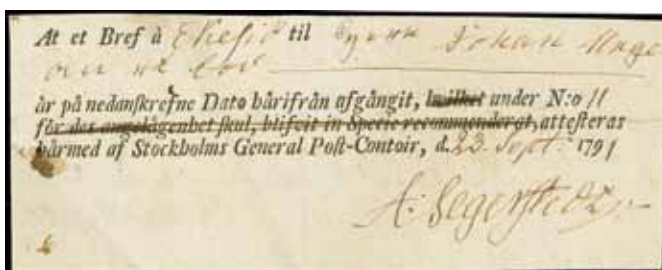 At et Bref à Ekesiö til Johan Unge
är på nedanskrefne Dato härifrån afgångit, hwilket under N:o 11
för des angelägenhet skul, blifvit in Specie recommenderat, attesteras
härmed af Stockholms General Post-Contoir, d. 22 Sept. 1791
A: Segerstedt